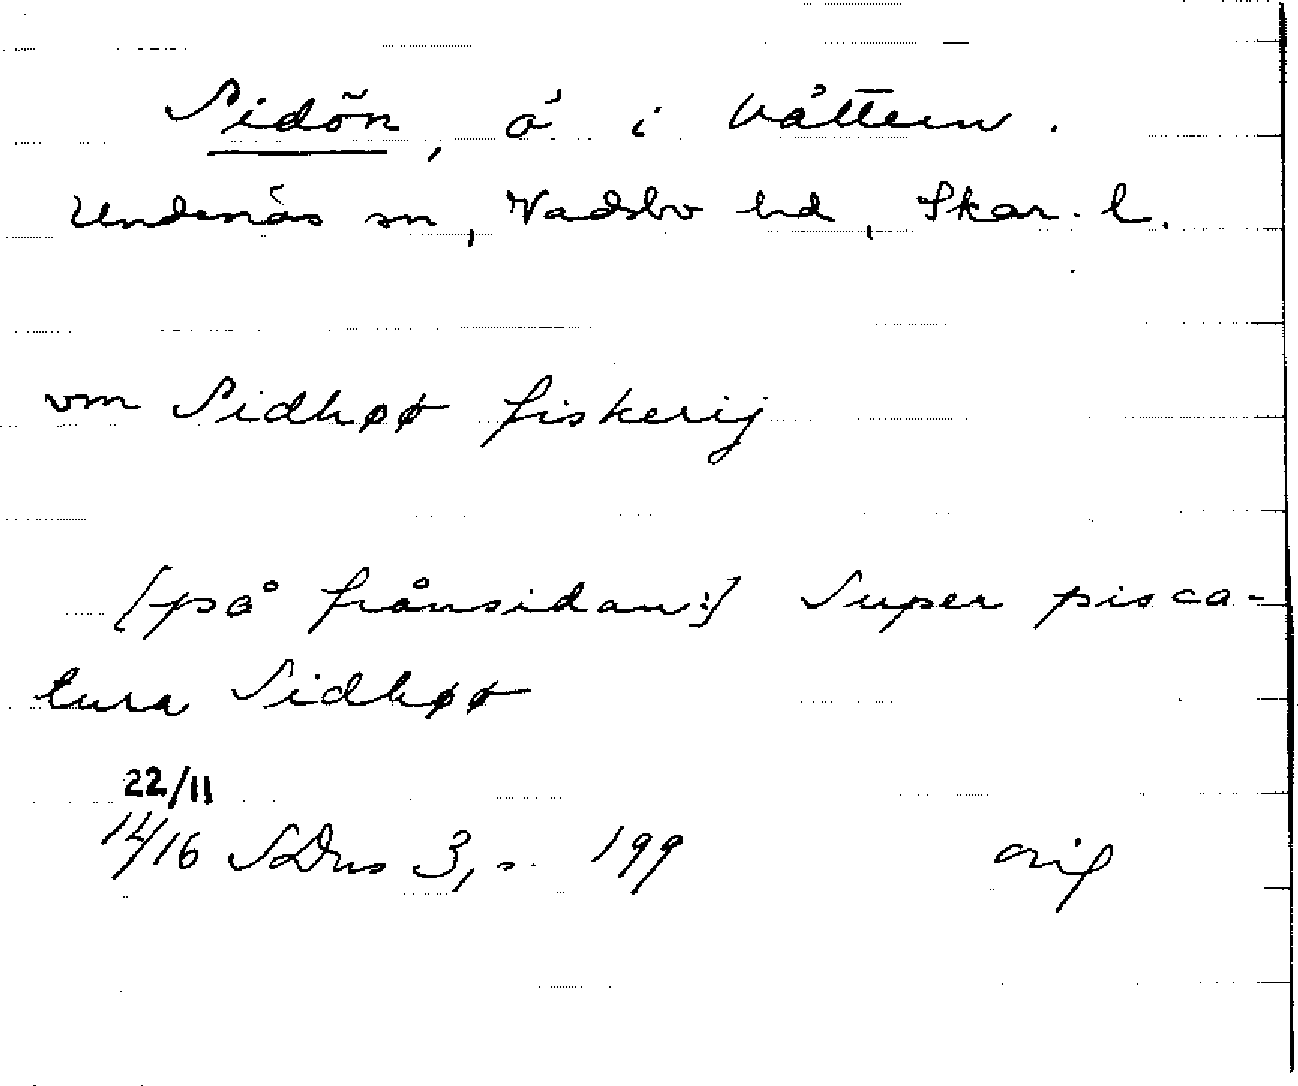 Sidön, ö i Vättern.
Undenäs sn, Vadsbo hd, Skar. l.
vm Sidhøø fiskerij
[på frånsidan:] Super pisca-
tura Sidhøø
22/11
14/16 SDns 3, s. 199 orig